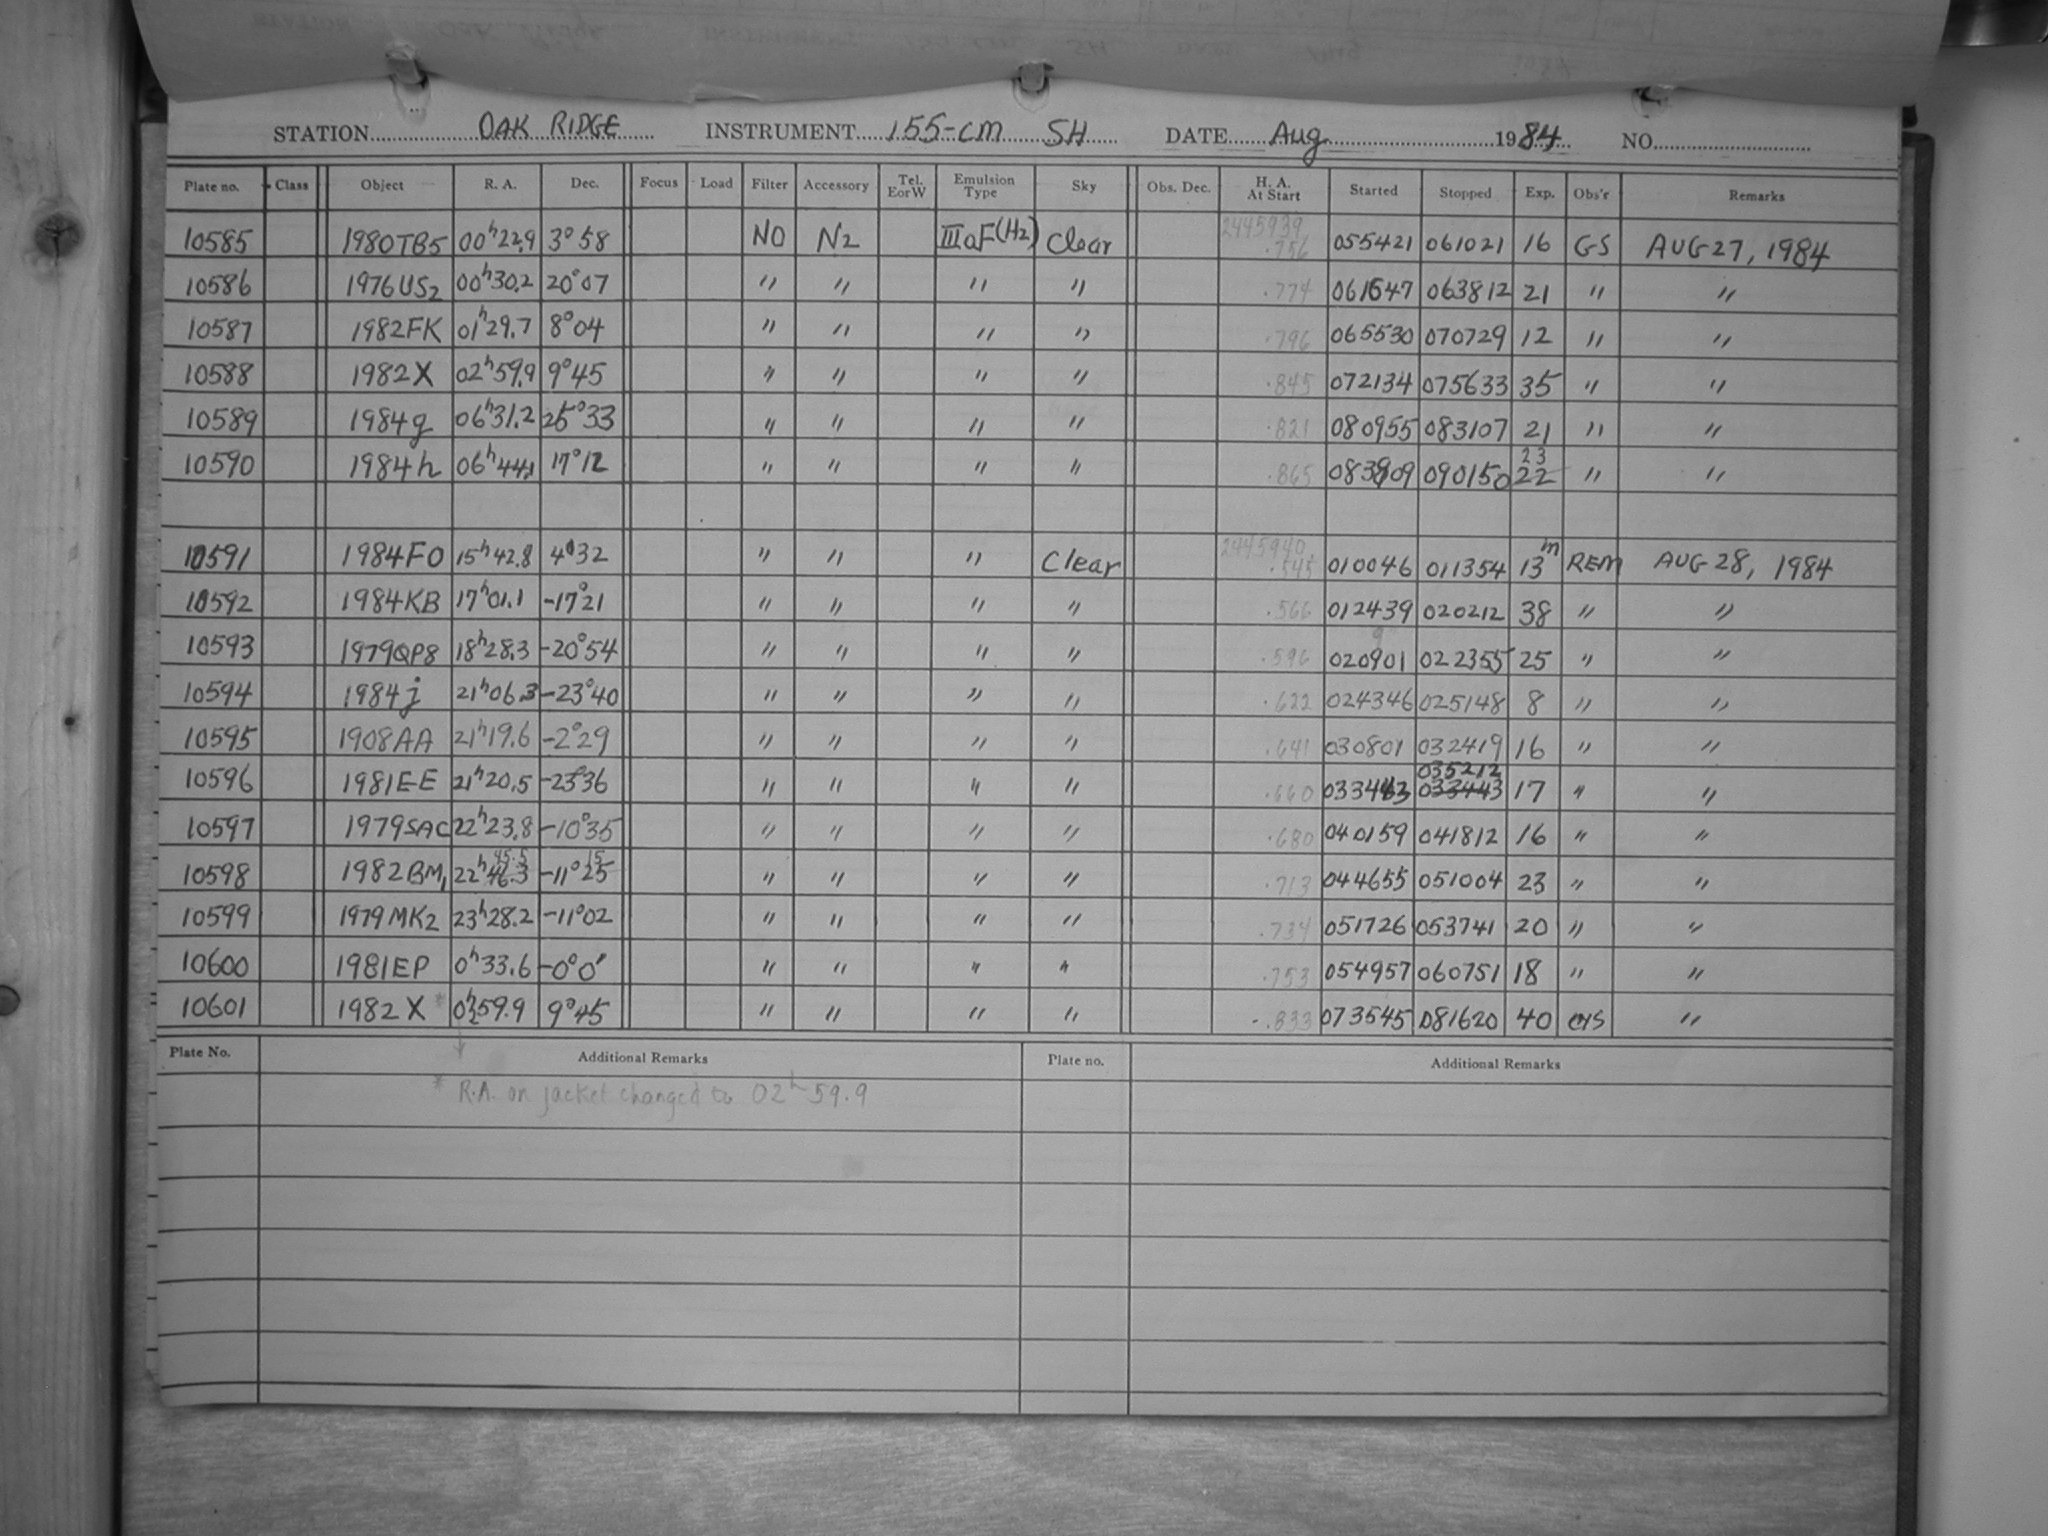 STATION OAK RIDGE INSTRUMENT 155-CM SH DATE Aug 1984 NO.
Plate no. Class Object R. A. Dec. Focus Load Filter Accessory Tel. E or W Emulsion Type Sky Obs. Dec. H. A. At Start Started Stopped Exp. Obs'r Remarks
10585 1980TB5 00h22.9 3°58 NO N2 IIIaF(H2) Clear 2445939 .756 055421 061021 16 GS AUG 27, 1984
10586 1976US2 00h30.2 20°07 " " " " .774 061647 063812 21 " "
10587 1982FK 01h29.7 8°04 " " " " .796 065530 070729 12 " "
10588 1982X 02h59.9 9°45 " " " " .845 072134 075633 35 " "
10589 1984g 06h31.2 25°33 " " " " .821 080955 083107 21 " "
10590 1984h 06h44.1 17°12 " " " " .865 083909 090150 22 23 " "
10591 1984FO 15h42.8 4°32 " " " Clear 2445940 .545 010046 011354 13m REM AUG 28, 1984
10592 1984KB 17h01.1 -17°21 " " " " .566 012439 020212 38 " "
10593 1979QP8 18h28.3 -20°54 " " " " .596 020901 9 022355 25 " "
10594 1984j 21h06.3 -23°40 " " " " .622 024346 025148 8 " "
10595 1908AA 21h19.6 -2°29 " " " " .641 030801 032419 16 " "
10596 1981EE 21h20.5 -23°36 " " " " .660 033443 033443 035212 17 " "
10597 1979SAC 22h23.8 -10°35 " " " " .680 040159 041812 16 " "
10598 1982BM1 22h46.3 45.5 -11°25 15 " " " " .713 044655 051004 23 " "
10599 1979MK2 23h28.2 -11°02 " " " " .734 051726 053741 20 " "
10600 1981EP 0h33.6 -0°0' " " " " .753 054957 060751 18 " "
10601 1982X * 02h59.9 9°45 " " " " .833 073545 081620 40 GS "
Plate No. Additional Remarks Plate no. Additional Remarks
* R.A. on jacket changed to 02h59.9